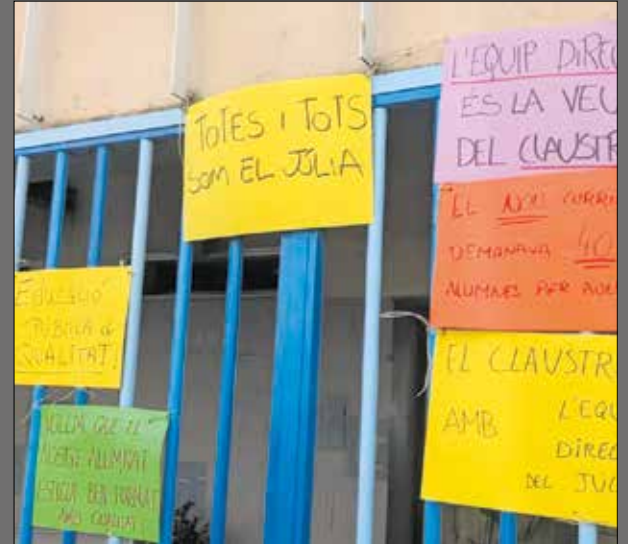 TOTES I TOTS
SOM EL JÚLIA
L'EQUIP DIREC
ÉS LA VEU
DEL CLAUSTR
EL NOU CURRÍ
DEMANAVA 40
ALUMNES PER AUL
EDUCACIÓ
PÚBLICA de
QUALITAT!
EL CLAUSTR
AMB L'EQU
DIREC
DEL JÚL
VOLEM QUE EL
NOSTRE ALUMNAT
ESTIGUI BEN FORMAT
AMB QUALITAT!